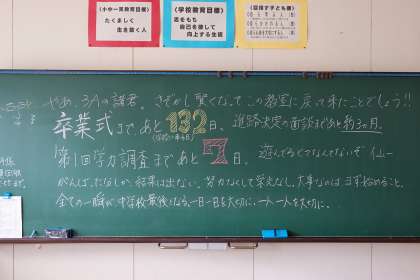 〈小中一貫教育目標〉
たくましく
生き抜く人
〈学校教育目標〉
志をもち
自己を律して
向上する生徒
〈目指す子ども像〉
やあ、3Aの諸君。さぞかし賢くなってこの教室に戻って来たことでしょう!!
卒業式まで、あと132日。進路決定の面談まであと約3ヵ月。
第1回学力調査まであと7日。遊んでるヒマなんてないぞ
がんばったなしか、結果は出ない。努力なくして栄光なし。大事なのは、まず始めること。
全ての一瞬が、中学校最後となる。一日一日を大切に。一人一人を大切に。